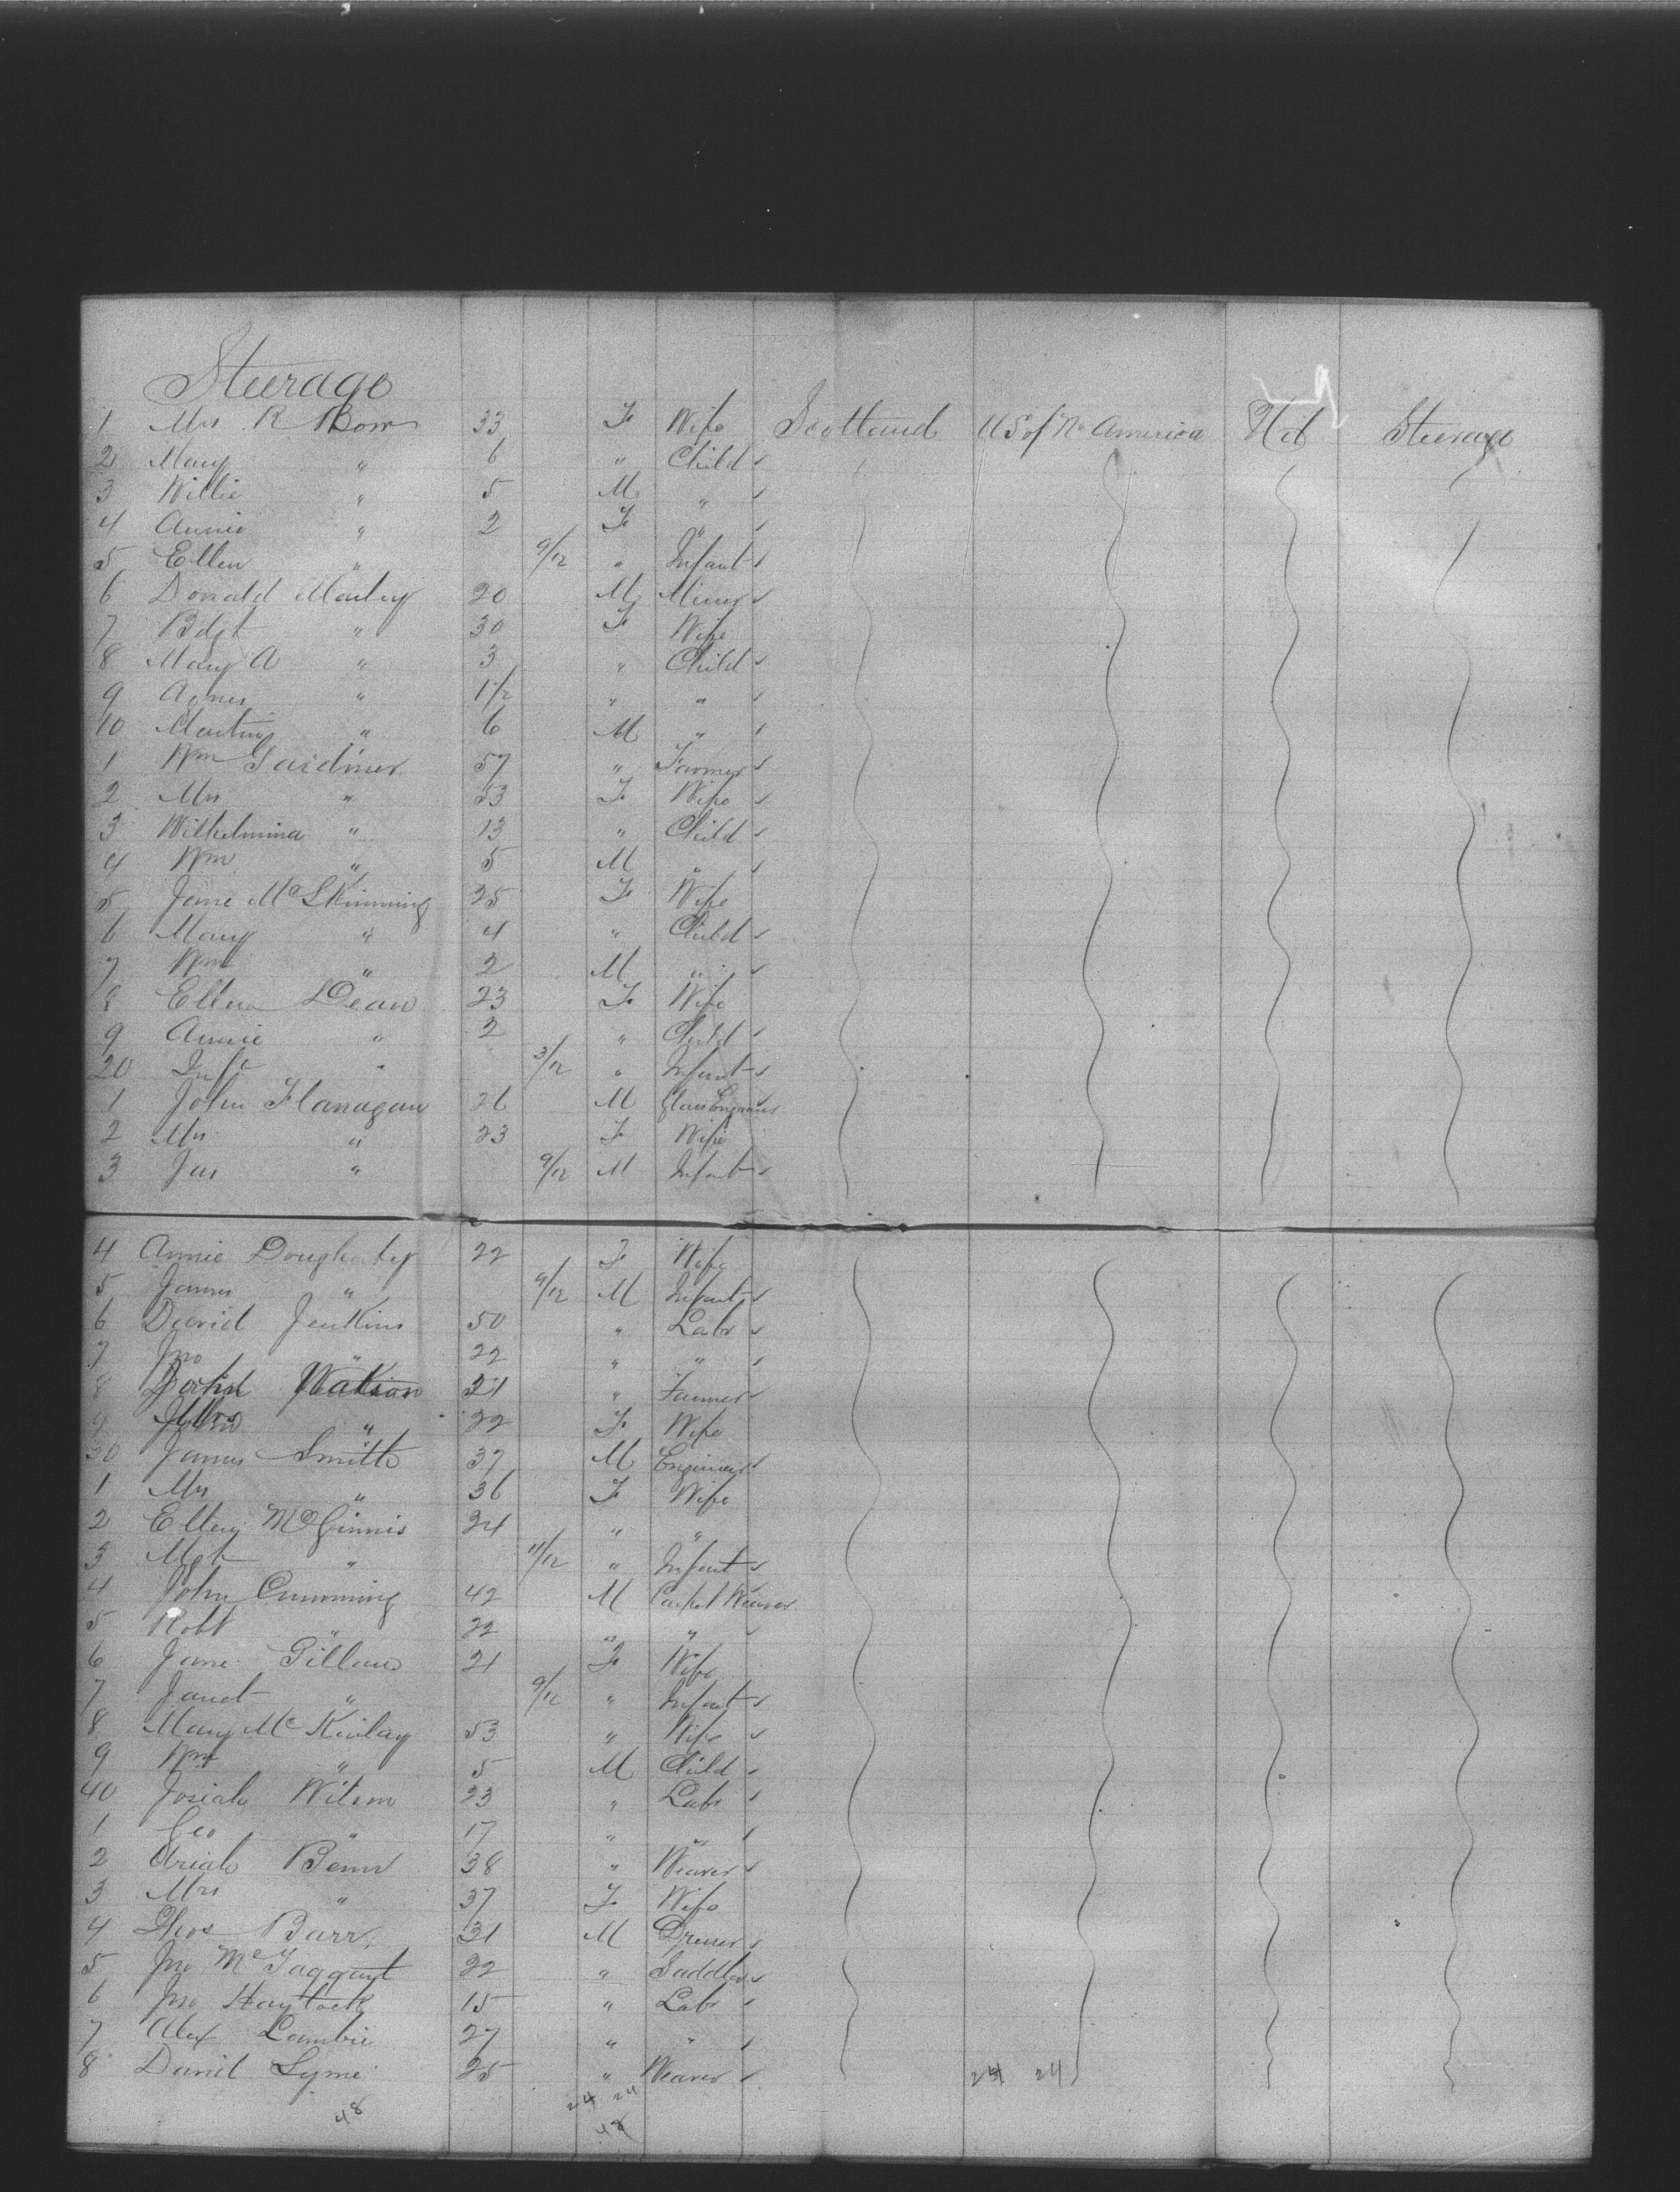 Steerage
1 Mrs R Bow 33 F Wife Scotland U S of No America Nil Steerage
2 Mary " 6 " Child
3 Willie " 5 M "
4 Annie " 2 F "
5 Ellen " 9/12 " Infant
6 Donald Manley 20 M Miner
7 Bdgt " 30 F Wife
8 Mary A " 3 " Child
9 Agnes " 1 1/2 " "
10 Martin " 6 M "
1 Wm Gardiner 57 " Farmer
2 Mrs " 53 F Wife
3 Wilhelmina " 13 " Child
4 Wm " 5 M "
5 Jane McSkimming 25 F Wife
6 Mary " 4 " Child
7 Wm " 2 M "
8 Ellen Dean 23 F Wife
9 Annie " 2 " Child
20 Inft " 3/12 " Infant
1 John Flanagan 26 M Glass Engraver
2 Mrs " 23 F Wife
3 Jas " 9/12 M Infant
4 Annie Dougherty 22 F Wife
5 James " 9/12 M Infant
6 David Jenkins 50 " Labr
7 Jno " 22 " "
8 Watson 21 " Farmer
9 " 22 F Wife
30 James Smith 37 M Engineer
1 Mrs " 36 F Wife
2 Ellen McGinnis 24 " "
3 Mgt " 11/12 " Infant
4 John Cumming 42 M Carpet Weaver
5 Robt " 22 " "
6 Jane Gillan 21 F Wife
7 Janet " 9/12 " Infant
8 Mary McKinlay 53 " Wife
9 Wm " 5 M Child
40 Josiah Wilson 23 " Labr
1 Geo " 17 " "
2 Uriah Benn 38 " Weaver
3 Mrs " 37 F Wife
4 Thos Barr 31 M Dresser
5 Jno McTaggart 22 " Saddler
6 Jno Haylock 15 " Labr
7 Alex Lambie 27 " "
8 David Syme 25 " Weaver 24 24
24 24
48 48